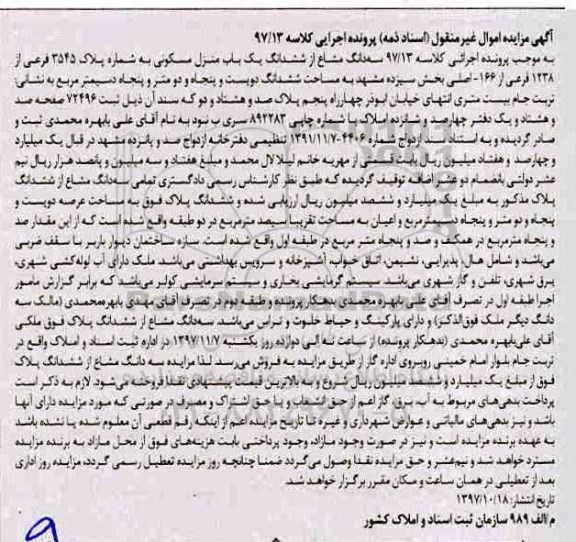 آگهی مزایده اموال غیرمنقول (اسناد ذمه) پرونده اجرایی کلاسه ۹۷/۱۳
به موجب پرونده اجرائی کلاسه ۹۷/۱۳ سه‌دانگ مشاع از ششدانگ یک باب منزل مسکونی به شماره پلاک ۳۵۴۵ فرعی از
۱۲۳۸ فرعی از ۱۶۶- اصلی بخش سیزده مشهد به مساحت ششدانگ دویست و پنجاه و دو متر و پنجاه دسیمتر مربع به نشانی:
تربت جام بیست متری انتهای خیابان ابوذر چهارراه پنجم پلاک صد و هشتاد و دو که سند آن ذیل ثبت ۷۲۴۹۶ صفحه صد
و هشتاد و یک دفتر چهارصد و شانزده املاک با شماره چاپی ۸۹۲۲۸۳ سری ب نود به نام آقای علی بابهره محمدی ثبت و
صادر گردیده و به استناد سند ازدواج شماره ۴۴۰۶-۱۳۹۱/۱۱/۷ تنظیمی دفترخانه ازدواج صد و پانزده مشهد در قبال یک میلیارد
و چهارصد و هفتاد میلیون ریال بابت قسمتی از مهریه خانم لیلا لال محمد و مبلغ هفتاد و سه میلیون و پانصد هزار ریال نیم
عشر دولتی بانضمام دو عشر اضافه توقیف گردیده که طبق نظر کارشناس رسمی دادگستری تمامی سه‌دانگ مشاع از ششدانگ
پلاک مذکور به مبلغ یک میلیارد و ششصد میلیون ریال ارزیابی شده و ششدانگ پلاک فوق به مساحت عرصه دویست و
پنجاه و دو متر و پنجاه دسیمترمربع و اعیان به مساحت تقریبا سیصد مترمربع در دو طبقه واقع شده است که از این مقدار صد
و پنجاه مترمربع در همکف و صد و پنجاه متر مربع در طبقه اول واقع شده است. سازه ساختمان دیوار باربر با سقف ضربی
می‌باشد و شامل هال، پذیرایی، نشیمن، اتاق خواب، آشپزخانه و سرویس بهداشتی می‌باشد. ملک دارای آب لوله‌کشی شهری،
برق شهری، تلفن و گاز شهری می‌باشد. سیستم گرمایشی بخاری و سیستم سرمایشی کولر می‌باشد که برابر گزارش مامور
اجرا طبقه اول در تصرف آقای علی بابهره محمدی بدهکار پرونده و طبقه دوم در تصرف آقای مهدی بابهره‌محمدی (مالک سه
دانگ دیگر ملک فوق‌الذکر) و دارای پارکینگ و حیاط خلوت و تراس می‌باشد. سه‌دانگ مشاع از ششدانگ پلاک فوق ملکی
آقای علی‌بابهره محمدی (بدهکار پرونده) از ساعت نه الی دوازده روز یکشنبه ۱۳۹۷/۱۱/۷ در اداره ثبت اسناد و املاک واقع در
تربت جام بلوار امام خمینی روبروی اداره گاز از طریق مزایده به فروش می‌رسد. لذا مزایده سه دانگ مشاع از ششدانگ پلاک
فوق از مبلغ یک میلیارد و ششصد میلیون ریال شروع و به بالاترین قیمت پیشنهادی نقدا فروخته می‌شود. لازم به ذکر است
پرداخت بدهی‌های مربوط به آب، برق، گاز اعم از حق انشعاب و یا حق اشتراک و مصرف در صورتی که مورد مزایده دارای آنها
باشد و نیز بدهی‌های مالیاتی و عوارض شهرداری و غیره تا تاریخ مزایده اعم از اینکه رقم قطعی آن معلوم شده یا نشده باشد
به عهده برنده مزایده است و نیز در صورت وجود مازاد، وجوه پرداختی بابت هزینه‌های فوق از محل مازاد به برنده مزایده
مسترد خواهد شد و نیم‌عشر و حق مزایده نقدا وصول می‌گردد ضمنا چنانچه روز مزایده تعطیل رسمی گردد، مزایده روز اداری
بعد از تعطیلی در همان ساعت و مکان مقرر برگزار خواهد شد.
تاریخ انتشار: ۱۳۹۷/۱۰/۱۸
م الف ۹۸۹ سازمان ثبت اسناد و املاک کشور
۹